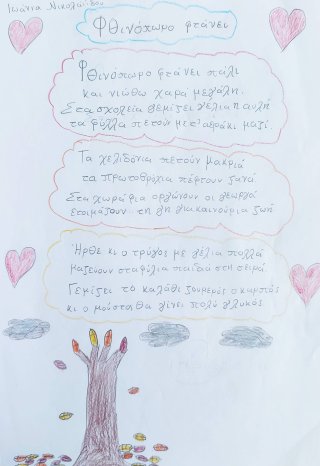 Ιωάννα Νικολαΐδου
Φθινόπωρο φτάνει
Φθινόπωρο φτάνει πάλι
και νιώθω χαρά μεγάλη.
Στα σχολεία γεμίζει γέλια η αυλή
τα φύλλα πετούν με τ' αεράκι μαζί.
Τα χελιδόνια πετούν μακριά
τα πρωτοβρόχια πέφτουν ξανά
Στα χωράφια οργώνουν οι γεωργοί
ετοιμάζουν τη γη για καινούρια ζωή
Ήρθε κι ο τρύγος με γέλια πολλά
μαζεύουν σταφύλια παιδιά στη σειρά
Γεμίζει το καλάθι ζουμερός ο καρπός
κι ο μούστος θα γίνει πολύ γλυκός